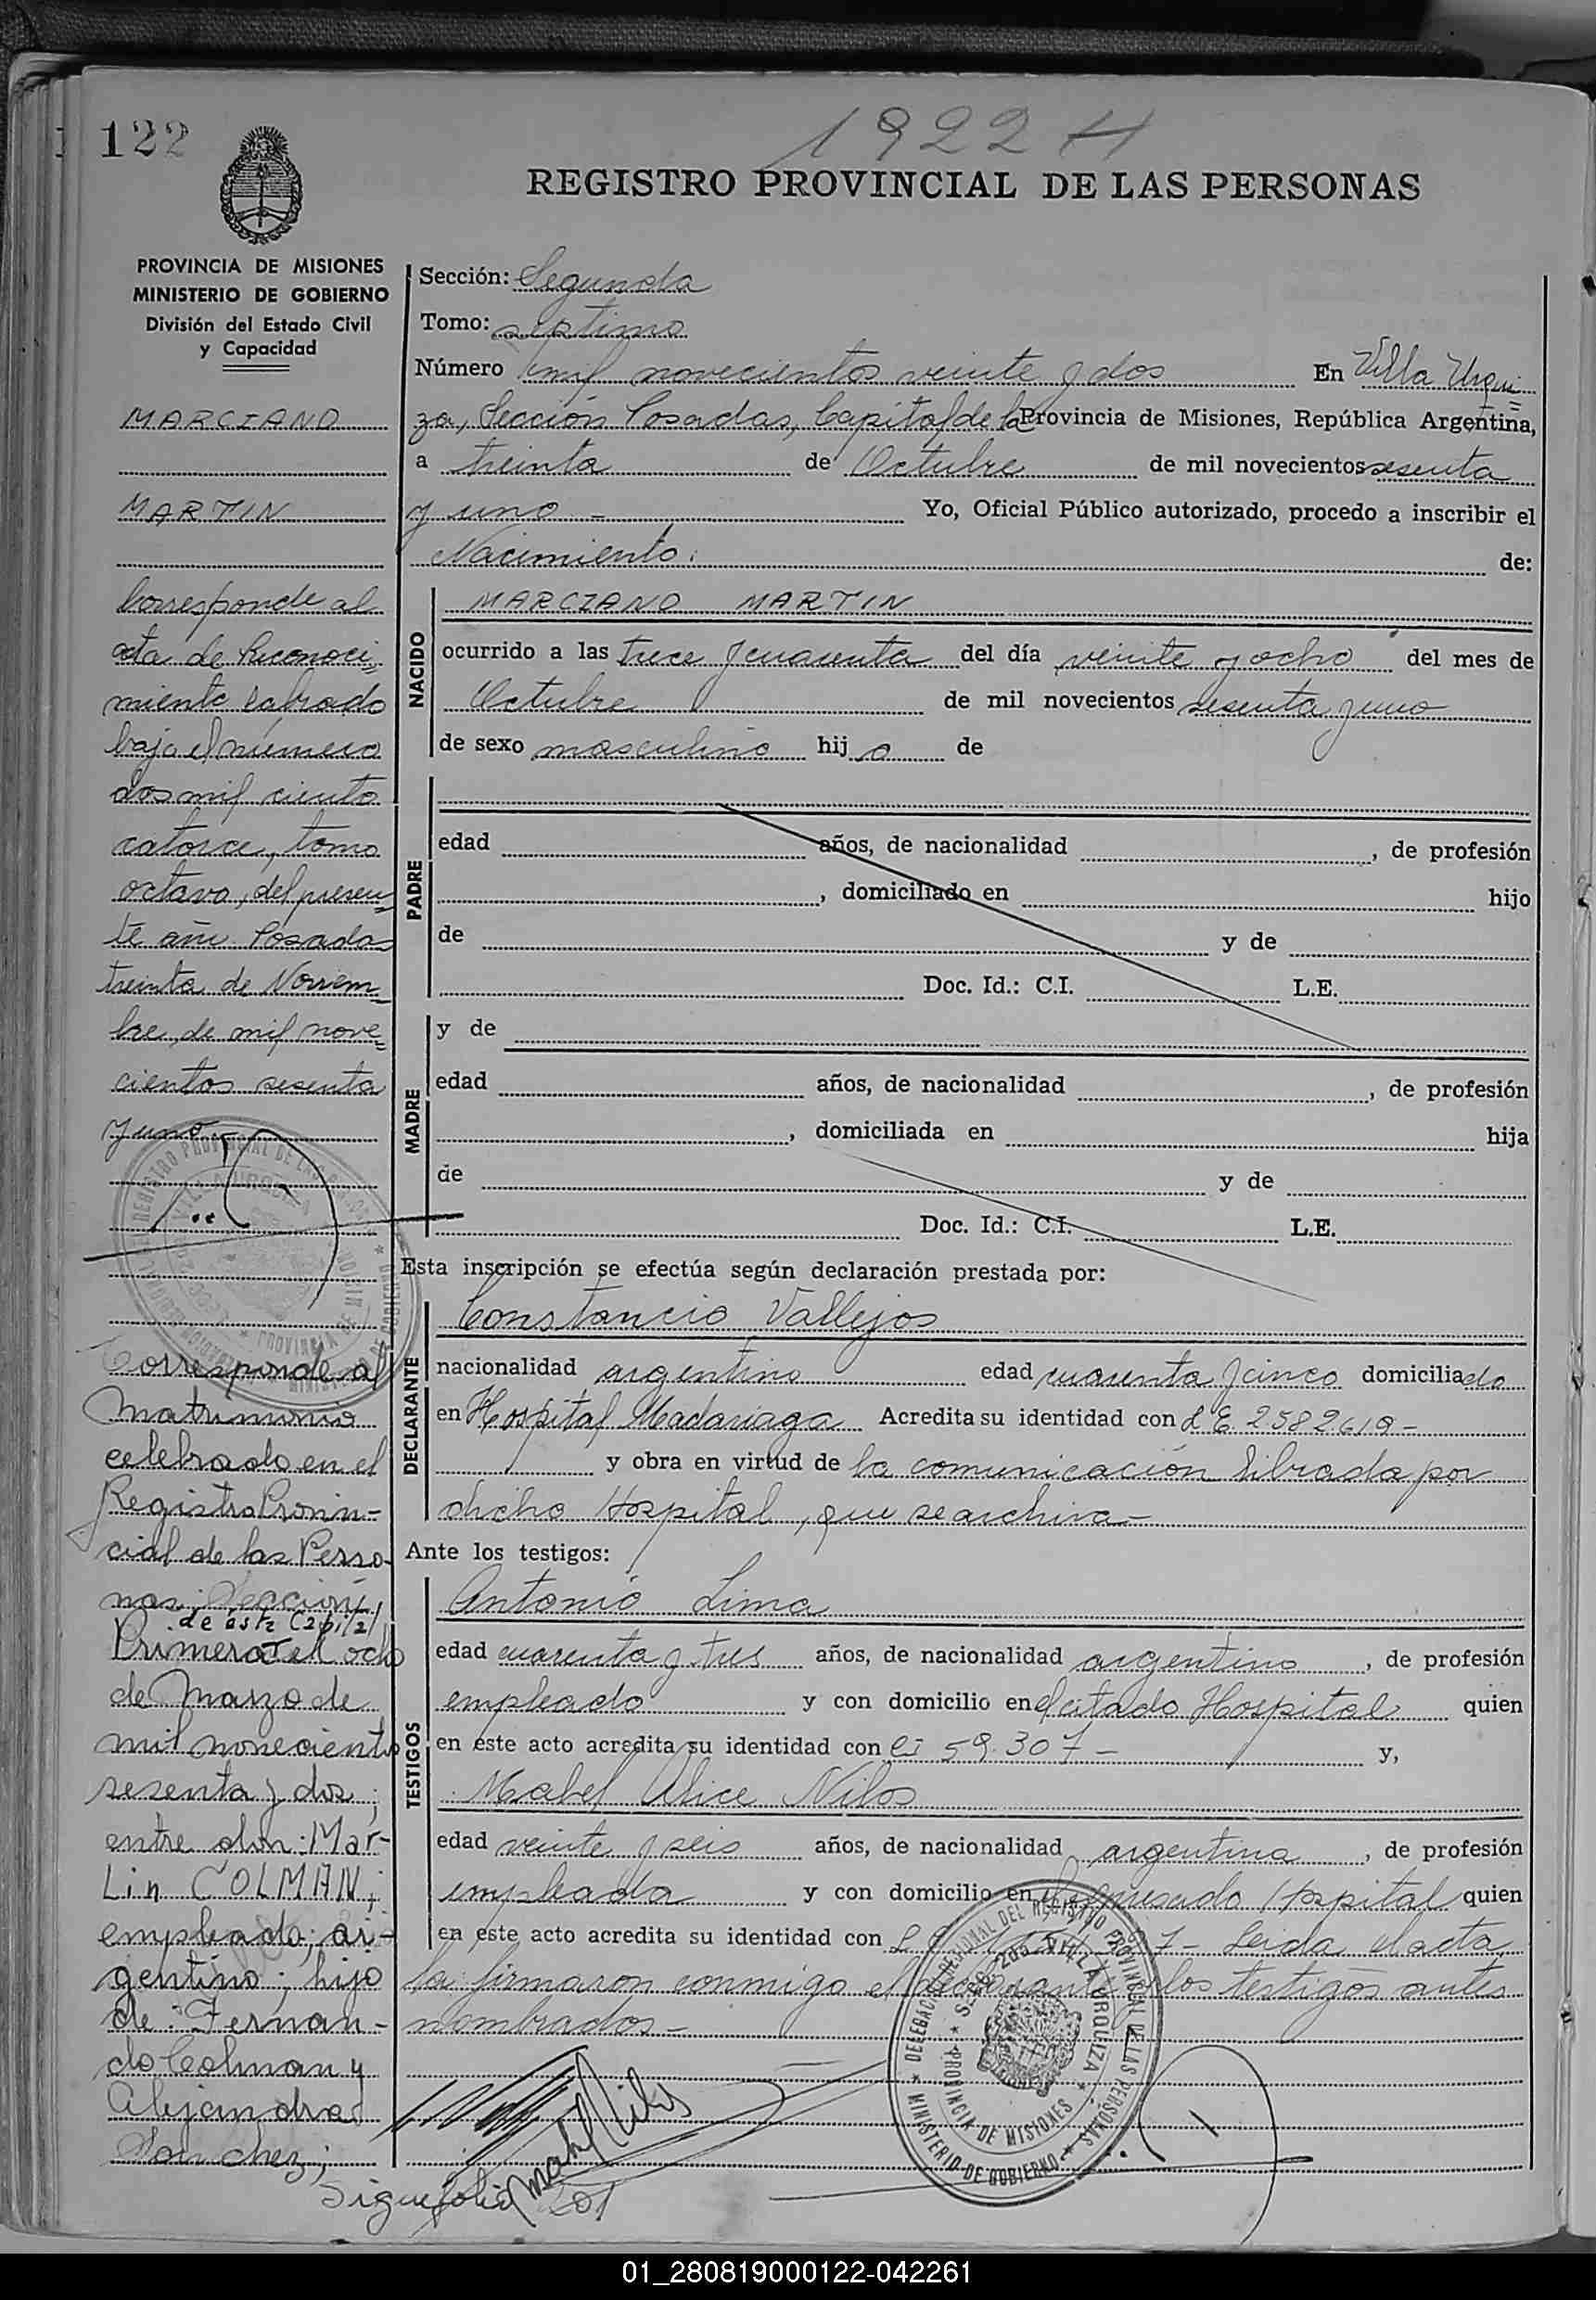 122
1922 H
REGISTRO PROVINCIAL DE LAS PERSONAS
PROVINCIA DE MISIONES
MINISTERIO DE GOBIERNO
División del Estado Civil
y Capacidad
MARCIANO
MARTIN
Corresponde al
acta de Reconoci=
miento labrado
bajo el número
dos mil ciento
catorce, tomo
octavo, del presen=
te año. Posadas
treinta de Noviem=
bre de mil nove=
cientos sesenta
y uno.-
Corresponde al
Matrimonio
celebrado en el
Registro Provin-
cial de las Perso-
nas: Sección
de ésta Capital
Primera el ocho
de Marzo de
mil novecientos
sesenta y dos;
entre don: Mar-
tin COLMAN;
empleado; ar-
gentino; hijo
de: Fernan-
do Colman y
Alejandra
Sanchez;
Sigue folio 201
Sección: Segunda
Tomo: septimo
Número mil novecientos veinte y dos En Villa Urqui=
za, Sección Posadas, Capital de la Provincia de Misiones, República Argentina,
a treinta de Octubre de mil novecientos sesenta
y uno - Yo, Oficial Público autorizado, procedo a inscribir el
Nacimiento: de:
NACIDO
MARCIANO MARTIN
ocurrido a las trece y cuarenta del día veinte y ocho del mes de
Octubre de mil novecientos sesenta y uno
de sexo masculino hij o de
PADRE
edad años, de nacionalidad , de profesión
, domiciliado en hijo
de y de
Doc. Id.: C.I. L.E.
MADRE
y de
edad años, de nacionalidad , de profesión
, domiciliada en hija
de y de
Doc. Id.: C.I. L.E.
Esta inscripción se efectúa según declaración prestada por:
DECLARANTE
Constancio Vallejos
nacionalidad argentino edad cuarenta y cinco domiciliado
en Hospital Madariaga Acredita su identidad con L.E. 2582619-
y obra en virtud de la comunicación librada por
dicho Hospital, que se archiva-
Ante los testigos:
TESTIGOS
Antonio Lima
edad cuarenta y tres años, de nacionalidad argentino , de profesión
empleado y con domicilio en el citado Hospital quien
en este acto acredita su identidad con Ci 59.307- y,
Mabel Alice Nilos
edad veinte y seis años, de nacionalidad argentina , de profesión
empleada y con domicilio en el expresado Hospital quien
en este acto acredita su identidad con L 7- Leida el acta,
la firmaron conmigo el declarante y los testigos antes
nombrados-
Mabel Nilos
DELEGACION SECCIONAL DEL REGISTRO PROVINCIAL DE LAS PERSONAS
MINISTERIO DE GOBIERNO
VILLA URQUIZA
PROVINCIA DE MISIONES
01_280819000122-042261